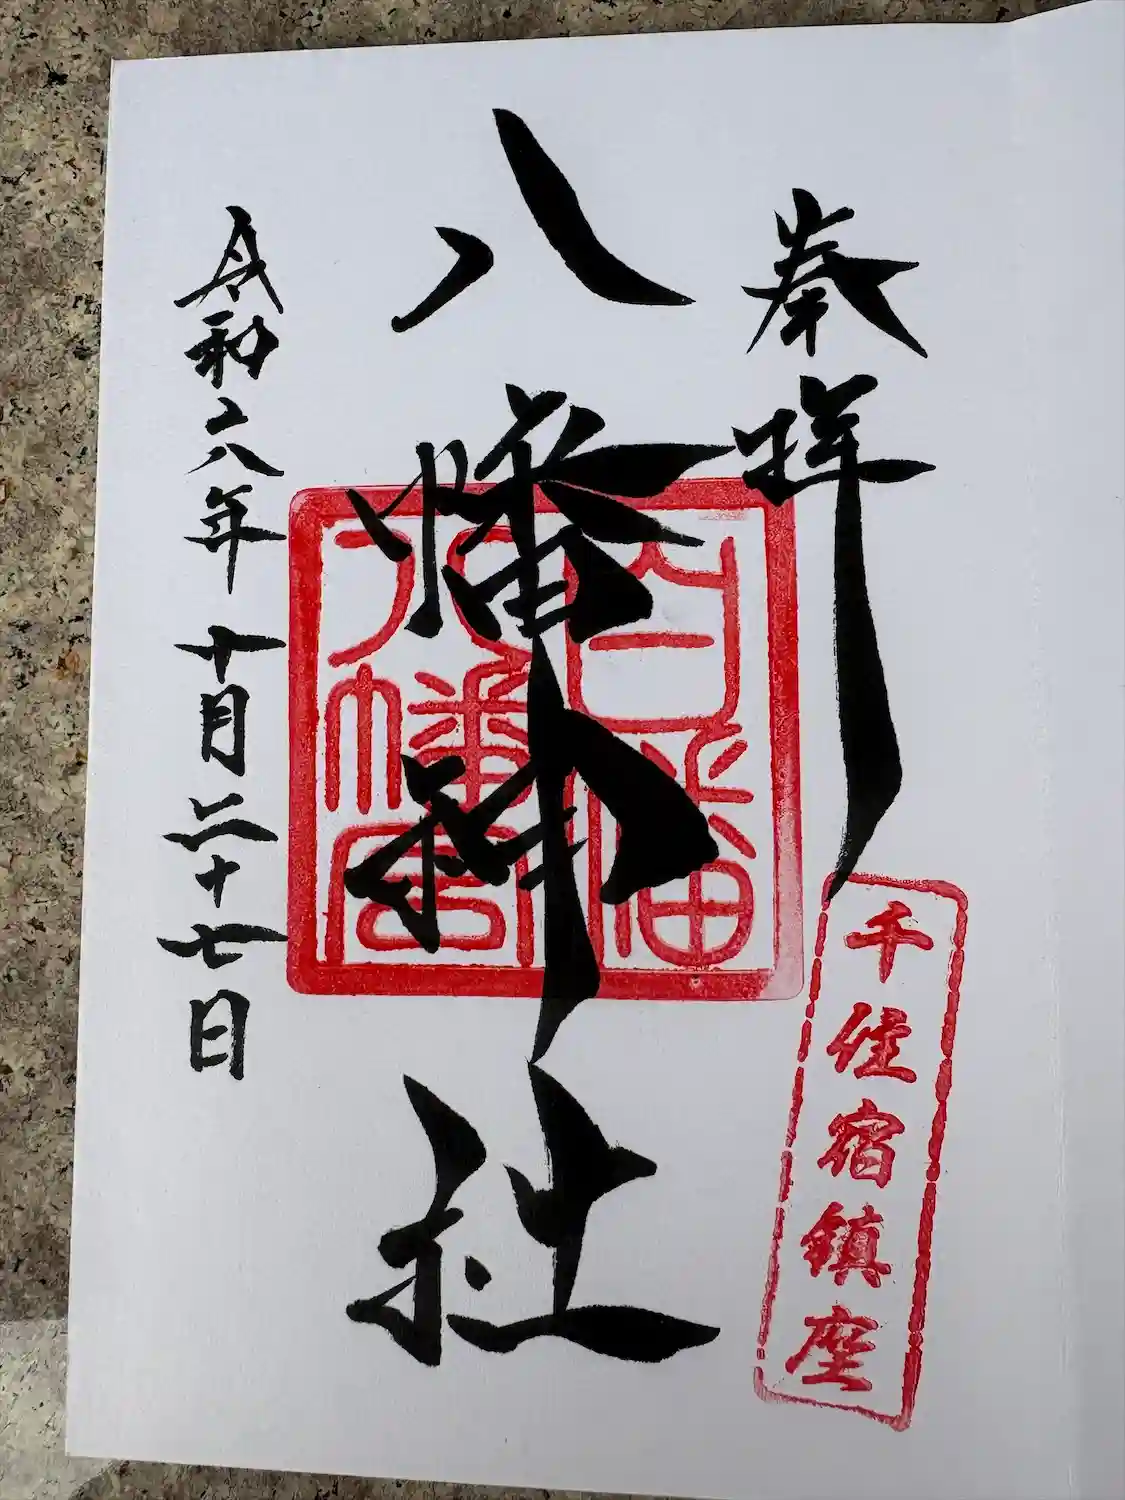 奉拝
千住宿鎮座
八幡神社
白幡
八幡宮
令和六年十月二十七日